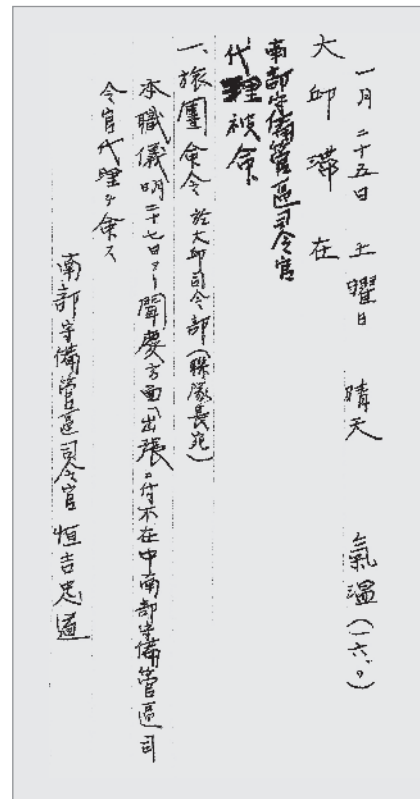 一月二十五日 土曜日 晴天 氣溫(一六、〇)
大邱滯在
南部守備管區司令官
代理被命
一、旅團命令 於大邱司令部(聯隊長宛)
本職儀明二十七日ヨリ聞慶方面ヘ出張ニ付不在中南部守備管區司
令官代理ヲ命ス
南部守備管區司令官 恒吉忠道